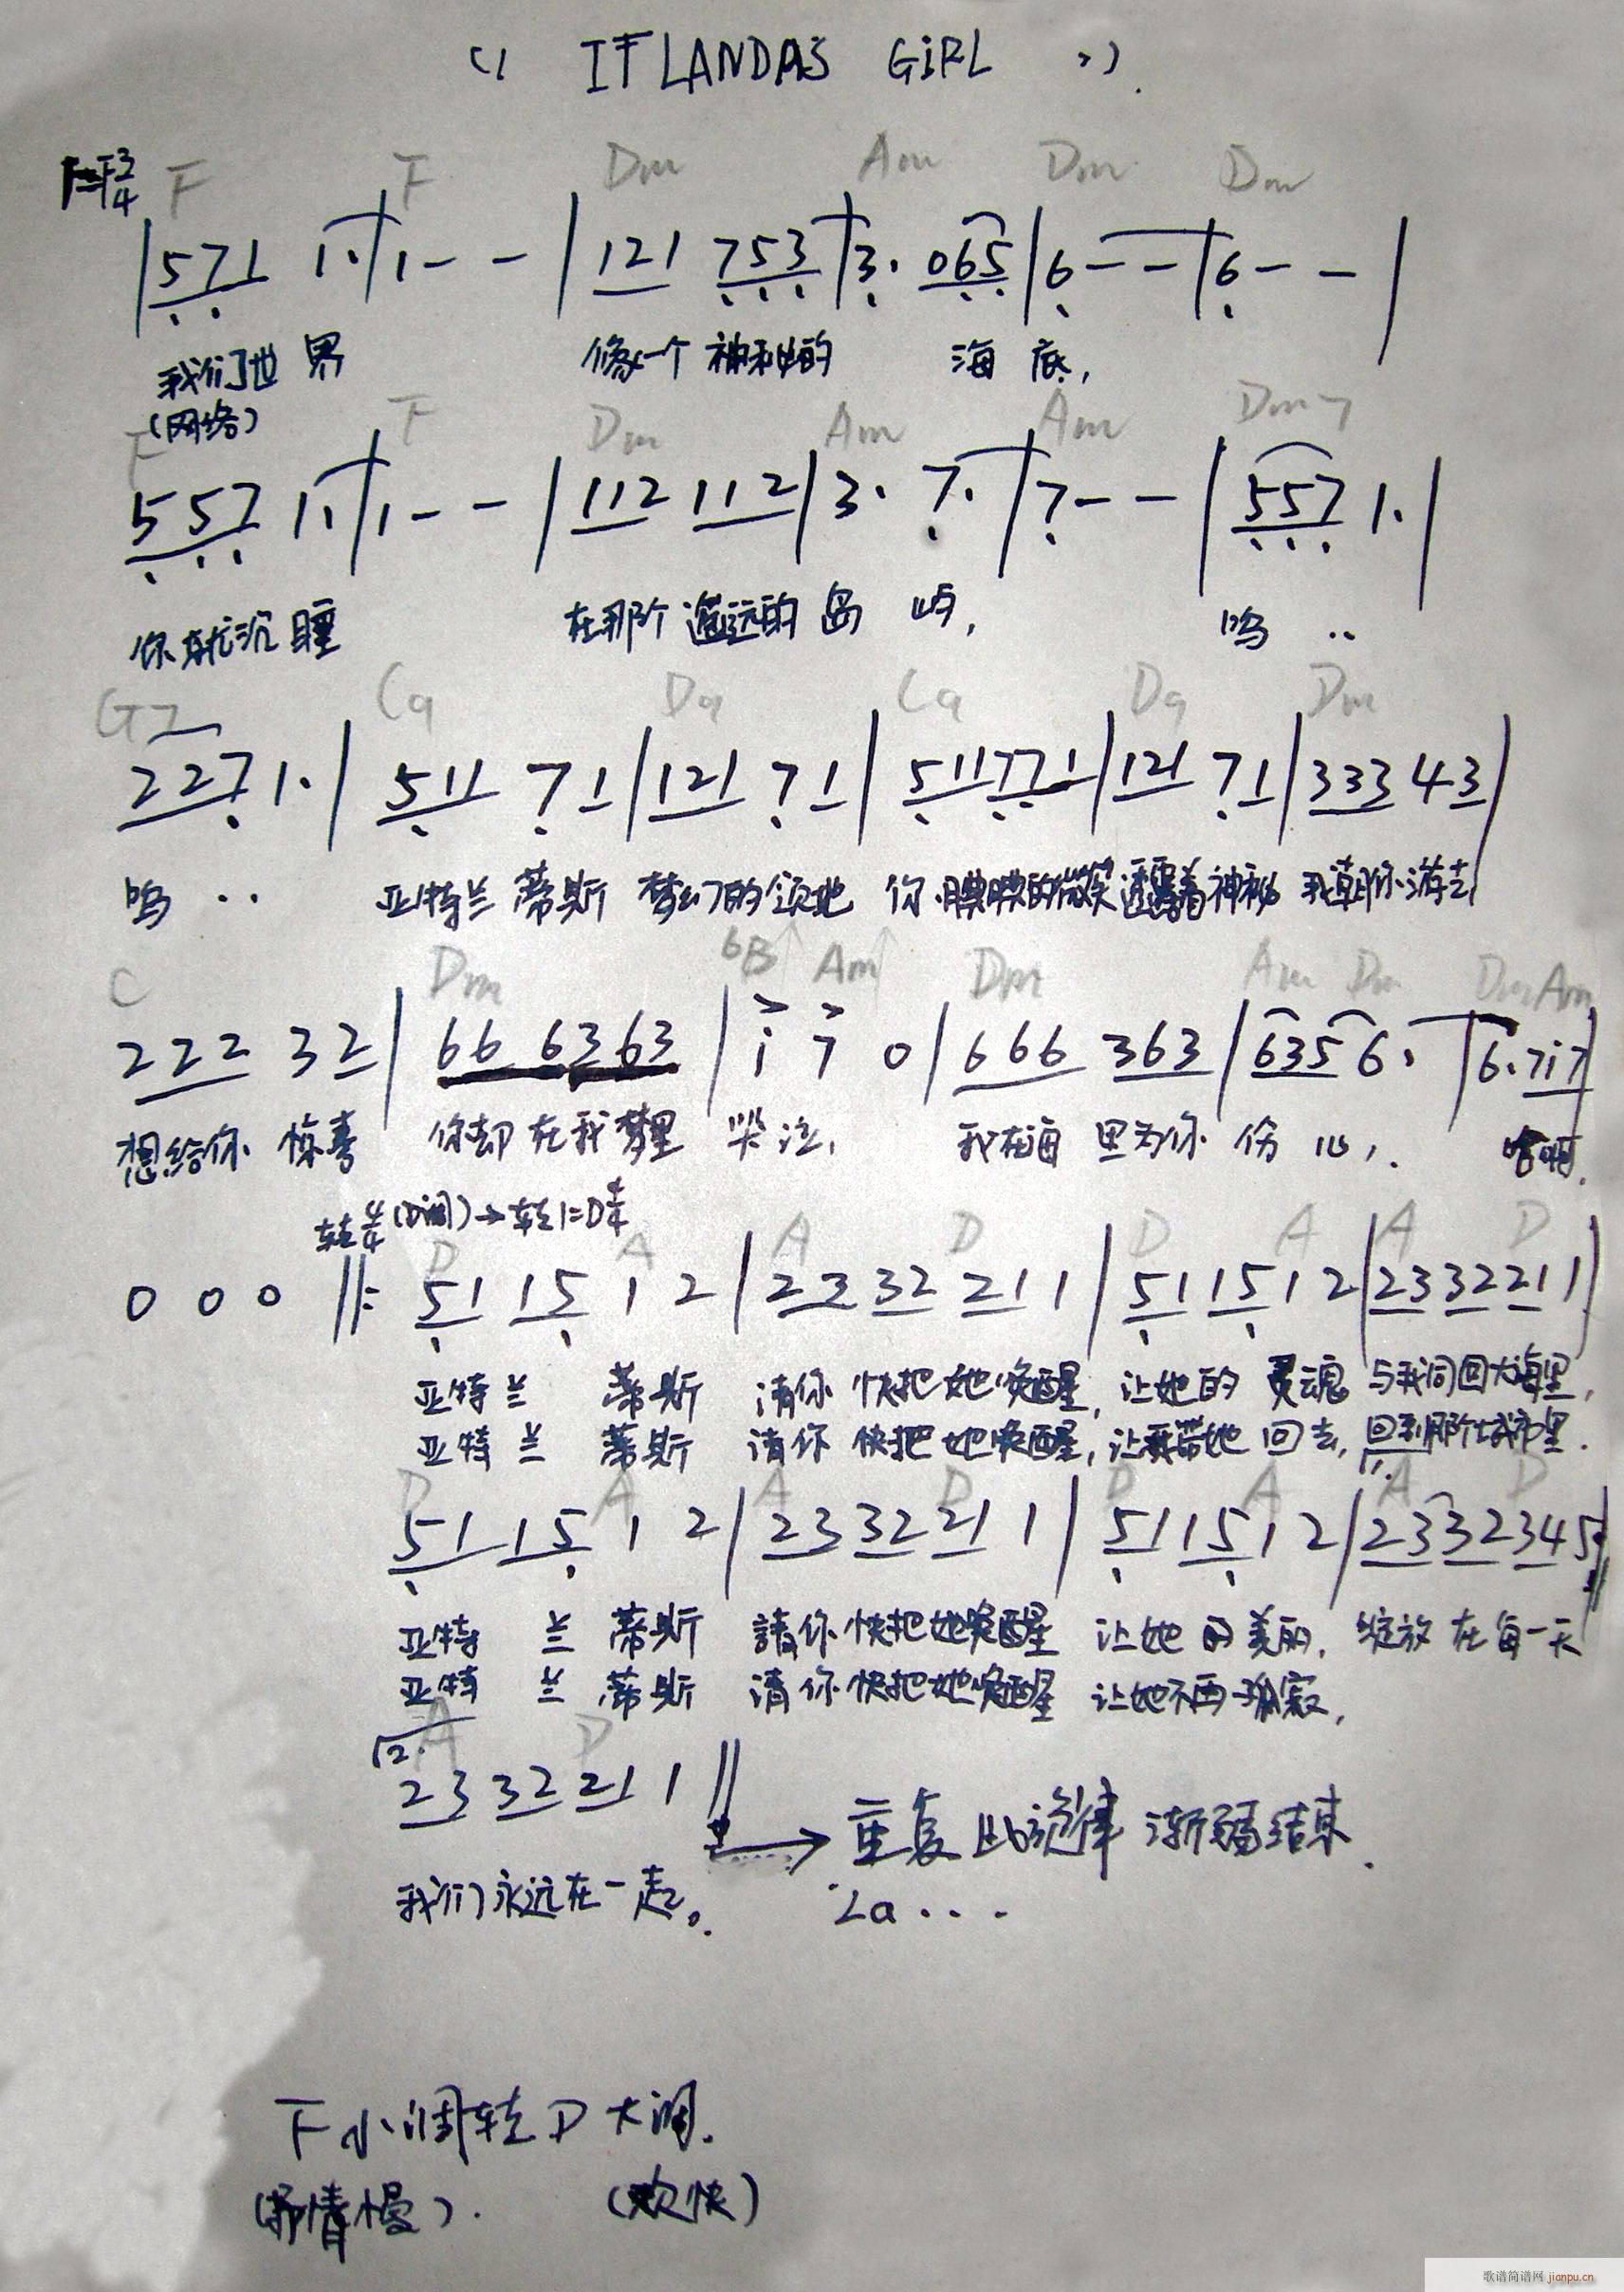 《 ITLANDAS GiRL 》
F F Dm Am Dm Dm
3/4 | 571 1· | 1 - - | 121 753 | 3· 065 | 6 - - | 6 - - |
我们世界 像一个神秘的 海底,
(网络)
F F Dm Am Am Dm7
557 1· | 1 - - | 112 112 | 3· 7· | 7 - - | 557 1· |
你就沉睡 在那个遥远的岛屿, 呜 ··
G7 C9 D9 C9 D9 Dm
227 1· | 511 7 1 | 121 7 1 | 511771 | 121 7 1 | 333 43 |
呜 ·· 亚特兰蒂斯 梦幻的领地 你腆腆的微笑透露着神秘 我朝你游去
C Dm bB Am Dm Am Dm Dm Am
222 32 | 66 6363 | i 7 0 | 666 363 | 635 6· | 6·7i7
想给你惊喜 你却在我梦里 哭泣, 我在海里为你 伤心,
转4/4(D调)→转1=D4/4
D A A D D A A D
0 0 0 ‖: 51 15 1 2 | 23 32 21 1 | 51 15 1 2 | 23 32 21 1
亚特兰 蒂斯 请你 快把她唤醒, 让她的 灵魂 与我同回大海里,
亚特兰 蒂斯 请你 快把她唤醒, 让我带她 回去, 回到那个城市里.
D A A D D A A D
51 15 1 2 | 23 32 21 1 | 51 15 1 2 | 23 32 34 5
亚特 兰 蒂斯 請你快把她唤醒 让她的美丽, 绽放在每一天
亚特 兰 蒂斯 请你快把她唤醒 让她不再孤寂,
A D
2. 23 32 21 1 ‖
→ 重复此旋律 渐弱结束.
我们永远在一起。 La ...
F小调转D大调.
(抒情慢). (欢快)
歌谱简谱网 jianpu.cn